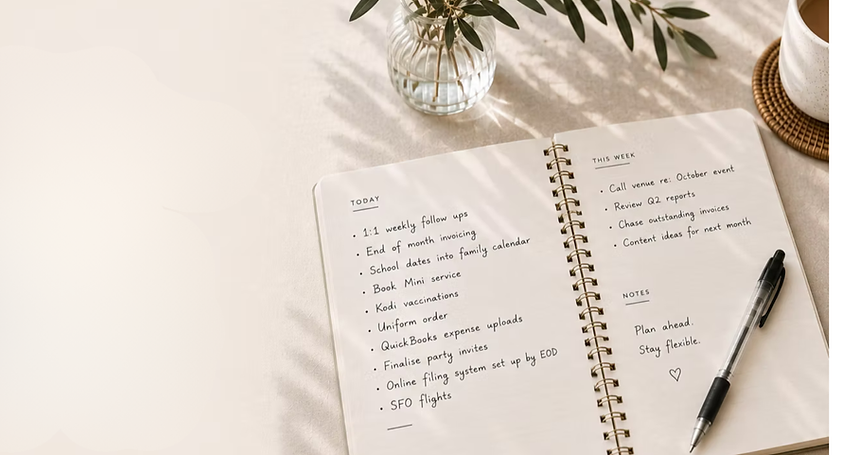 TODAY
• 1:1 weekly follow ups
• End of month invoicing
• School dates into family calendar
• Book Mini service
• Kodi vaccinations
• Uniform order
• QuickBooks expense uploads
• Finalise party invites
• Online filing system set up by EOD
• SFO flights
THIS WEEK
• Call venue re: October event
• Review Q2 reports
• Chase outstanding invoices
• Content ideas for next month
NOTES
Plan ahead.
Stay flexible.
♡